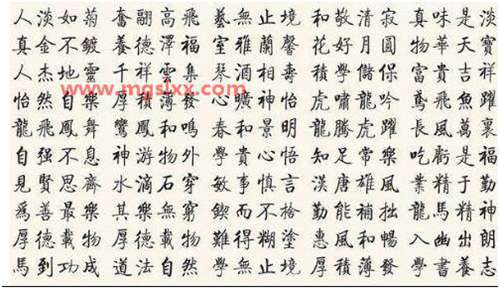 人淡如菊 奮翮高飛 藝無止境 和敬清寂 真味是淡
真金不鍍 養德澤福 室雅蘭馨 花好月圓 物華天寶
人杰地靈 千祥雲集 琴酒相壽 積學儲保 富貴吉祥
怡然自樂 厚積薄發 心曠神怡 虎嘯龍吟 鳶飛魚躍
龍飛鳳舞 鸞鳳和鳴 春和景明 龍騰虎躍 長風萬裹
自强不息 神游物外 學貴心悟 知足常樂 吃虧是福
見賢思齊 水滴石穿 敏事慎言 漢唐雄風 業精于勤
爲善最樂 其樂無窮 鍥而不捨 勤能補拙 龍馬精神
厚德載物 厚德載物 難得糊塗 惠風和暢 入幽出朗
馬到功成 道法自然 學無止境 厚積薄發 學書養志
www.mgsixx.com